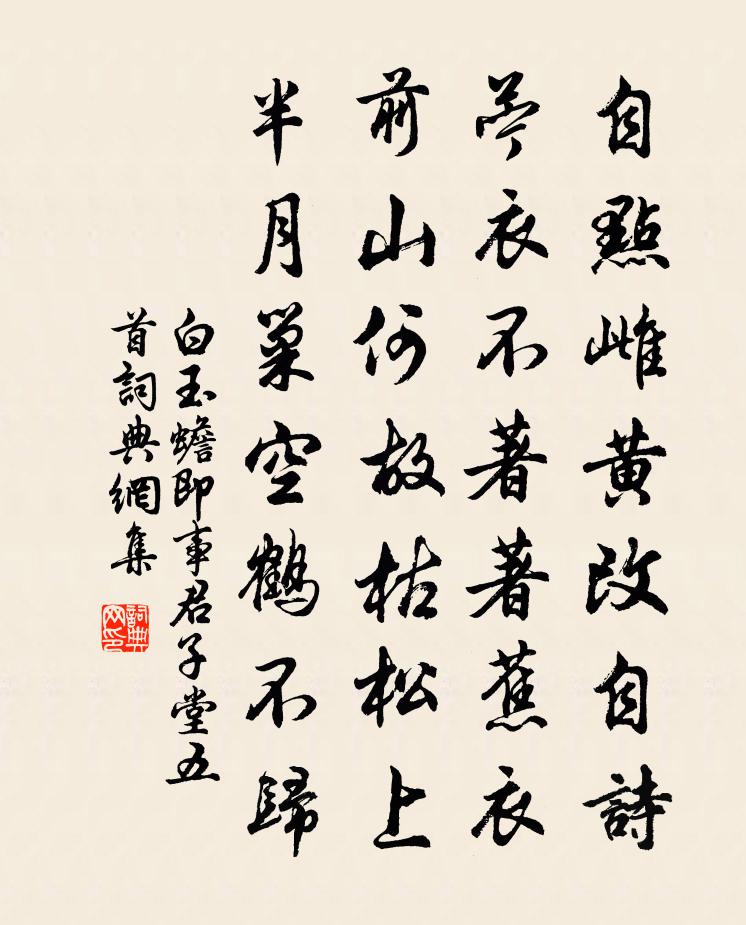 自點雌黃改自詩
苧衣不著著蕉衣
前山何故枯松上
半月巢空鶴不歸
白玉蟾即事君子堂五
首詞典網集
詞典
网印